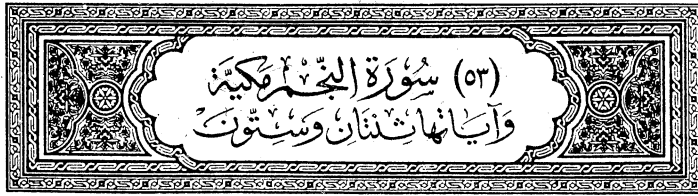 (٥٣) سُورَة النَّجْم مَكيَّة
وَآيَاتهَا ثنتَان وَسِتّونَ